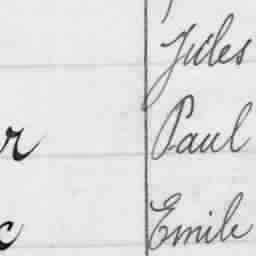 Jules
r Paul
c Emile